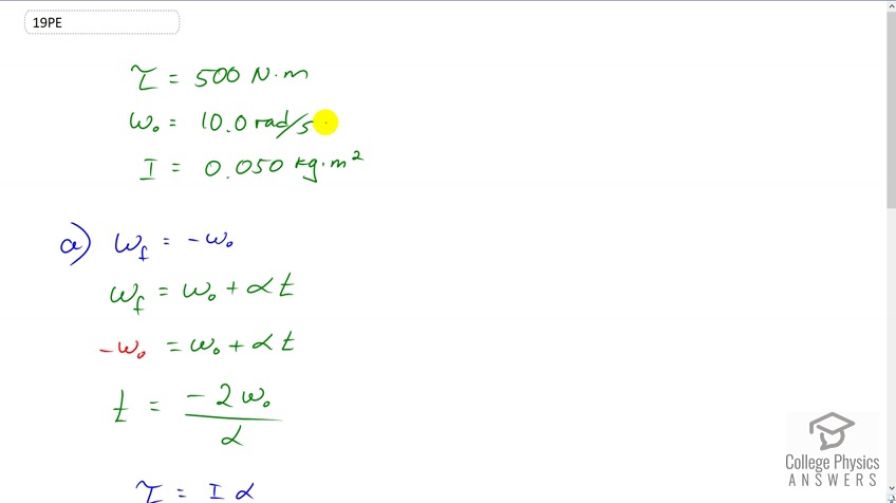 19PE
τ = 500 N·m
ω₀ = 10.0 rad/s
I = 0.050 kg·m²
a) ω_f = -ω₀
ω_f = ω₀ + αt
-ω₀ = ω₀ + αt
t = -2ω₀ / α
τ = Iα
College Physics
ANSWERS